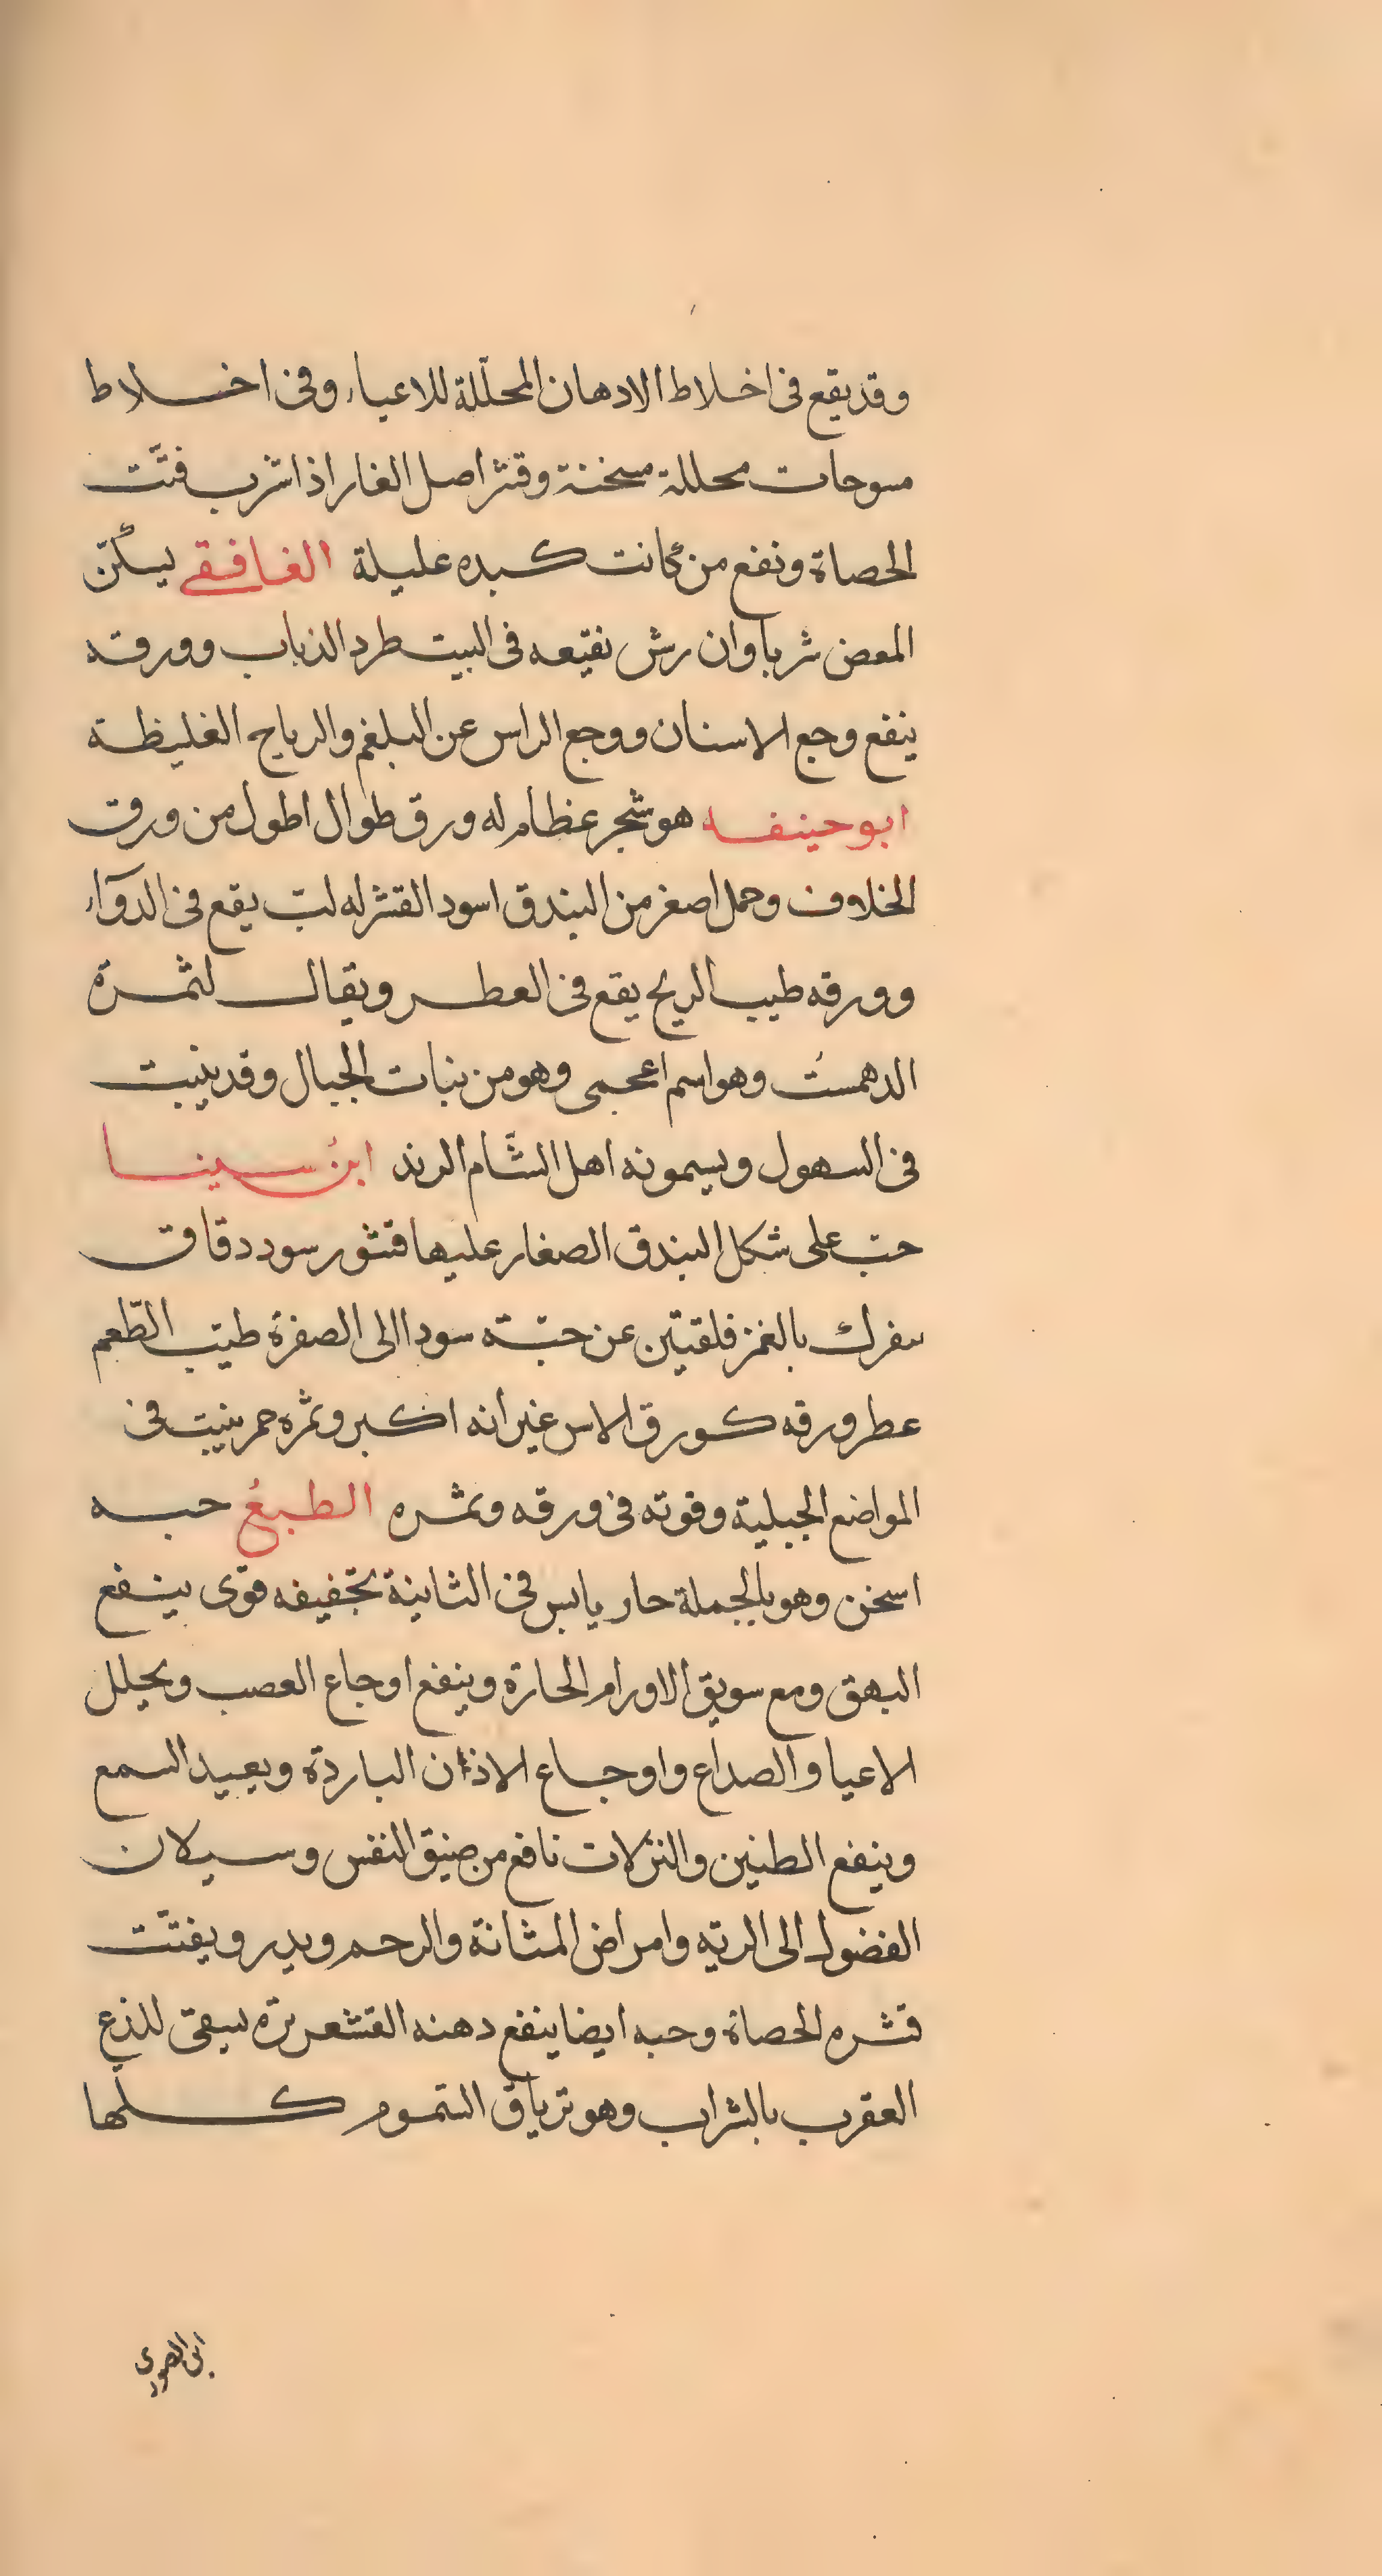 وقد يقع فى اخلاط الادهان المحلّلة للاعياء وفى اخلاط
مسوحات محللة مسخنة وقشر اصل الغار اذا شرب فتّت
الحصاة ونفع من كانت كبده عليلة الغافقى يسكّن
المعض شربا وان رش نقيعه فى البيت طرد الذباب وورقه
ينفع وجع الاسنان ووجع الراس عن البلغم والرياح الغليظة
ابو حينفه هو شجر عظام له ورق طوال اطول من ورق
الخلاف وحمل اصغر من البندق اسود القشر له لبّ يقع فى الدوآء
وورقه طيب الريح يقع فى العطر ويقال لثمرة
الدهمستُ وهو اسم اعجمى وهو من نبات الجبال وقد ينبت
فى السهول ويسمونه اهل الشّام الرند ابنُ سينا
حبّ على شكل البندق الصغار عليها قشور سود دقاق
سفرك بالغمز فلقتين عن حبّته سودا الى الصفرة طيّب الطّعم
عطر ورقه كورق الاس غير انه اكبر وثمره حمر ينبت فى
المواضع الجبلية وقوته فى ورقه وثمره الطبعُ حبه
اسخن وهو بالجملة حار يابس فى الثانية تجفيفه قوى ينفع
البهق ومع سويق الاورام الحارة وينفع اوجاع العصب ويحلل
الاعيا والصداع واوجاع الاذان الباردة ويعيد السمع
وينفع الطنين والنزلات نافع من ضيق النفس وسيلان
الفضول الى الريه وامراض المثانة والرحم ويدر ويفتّت
قشره الحصاة وحبه ايضا ينفع دهنه القشعريرة يسقى للذع
العقرب بالشراب وهو ترياق السّموم كلّها